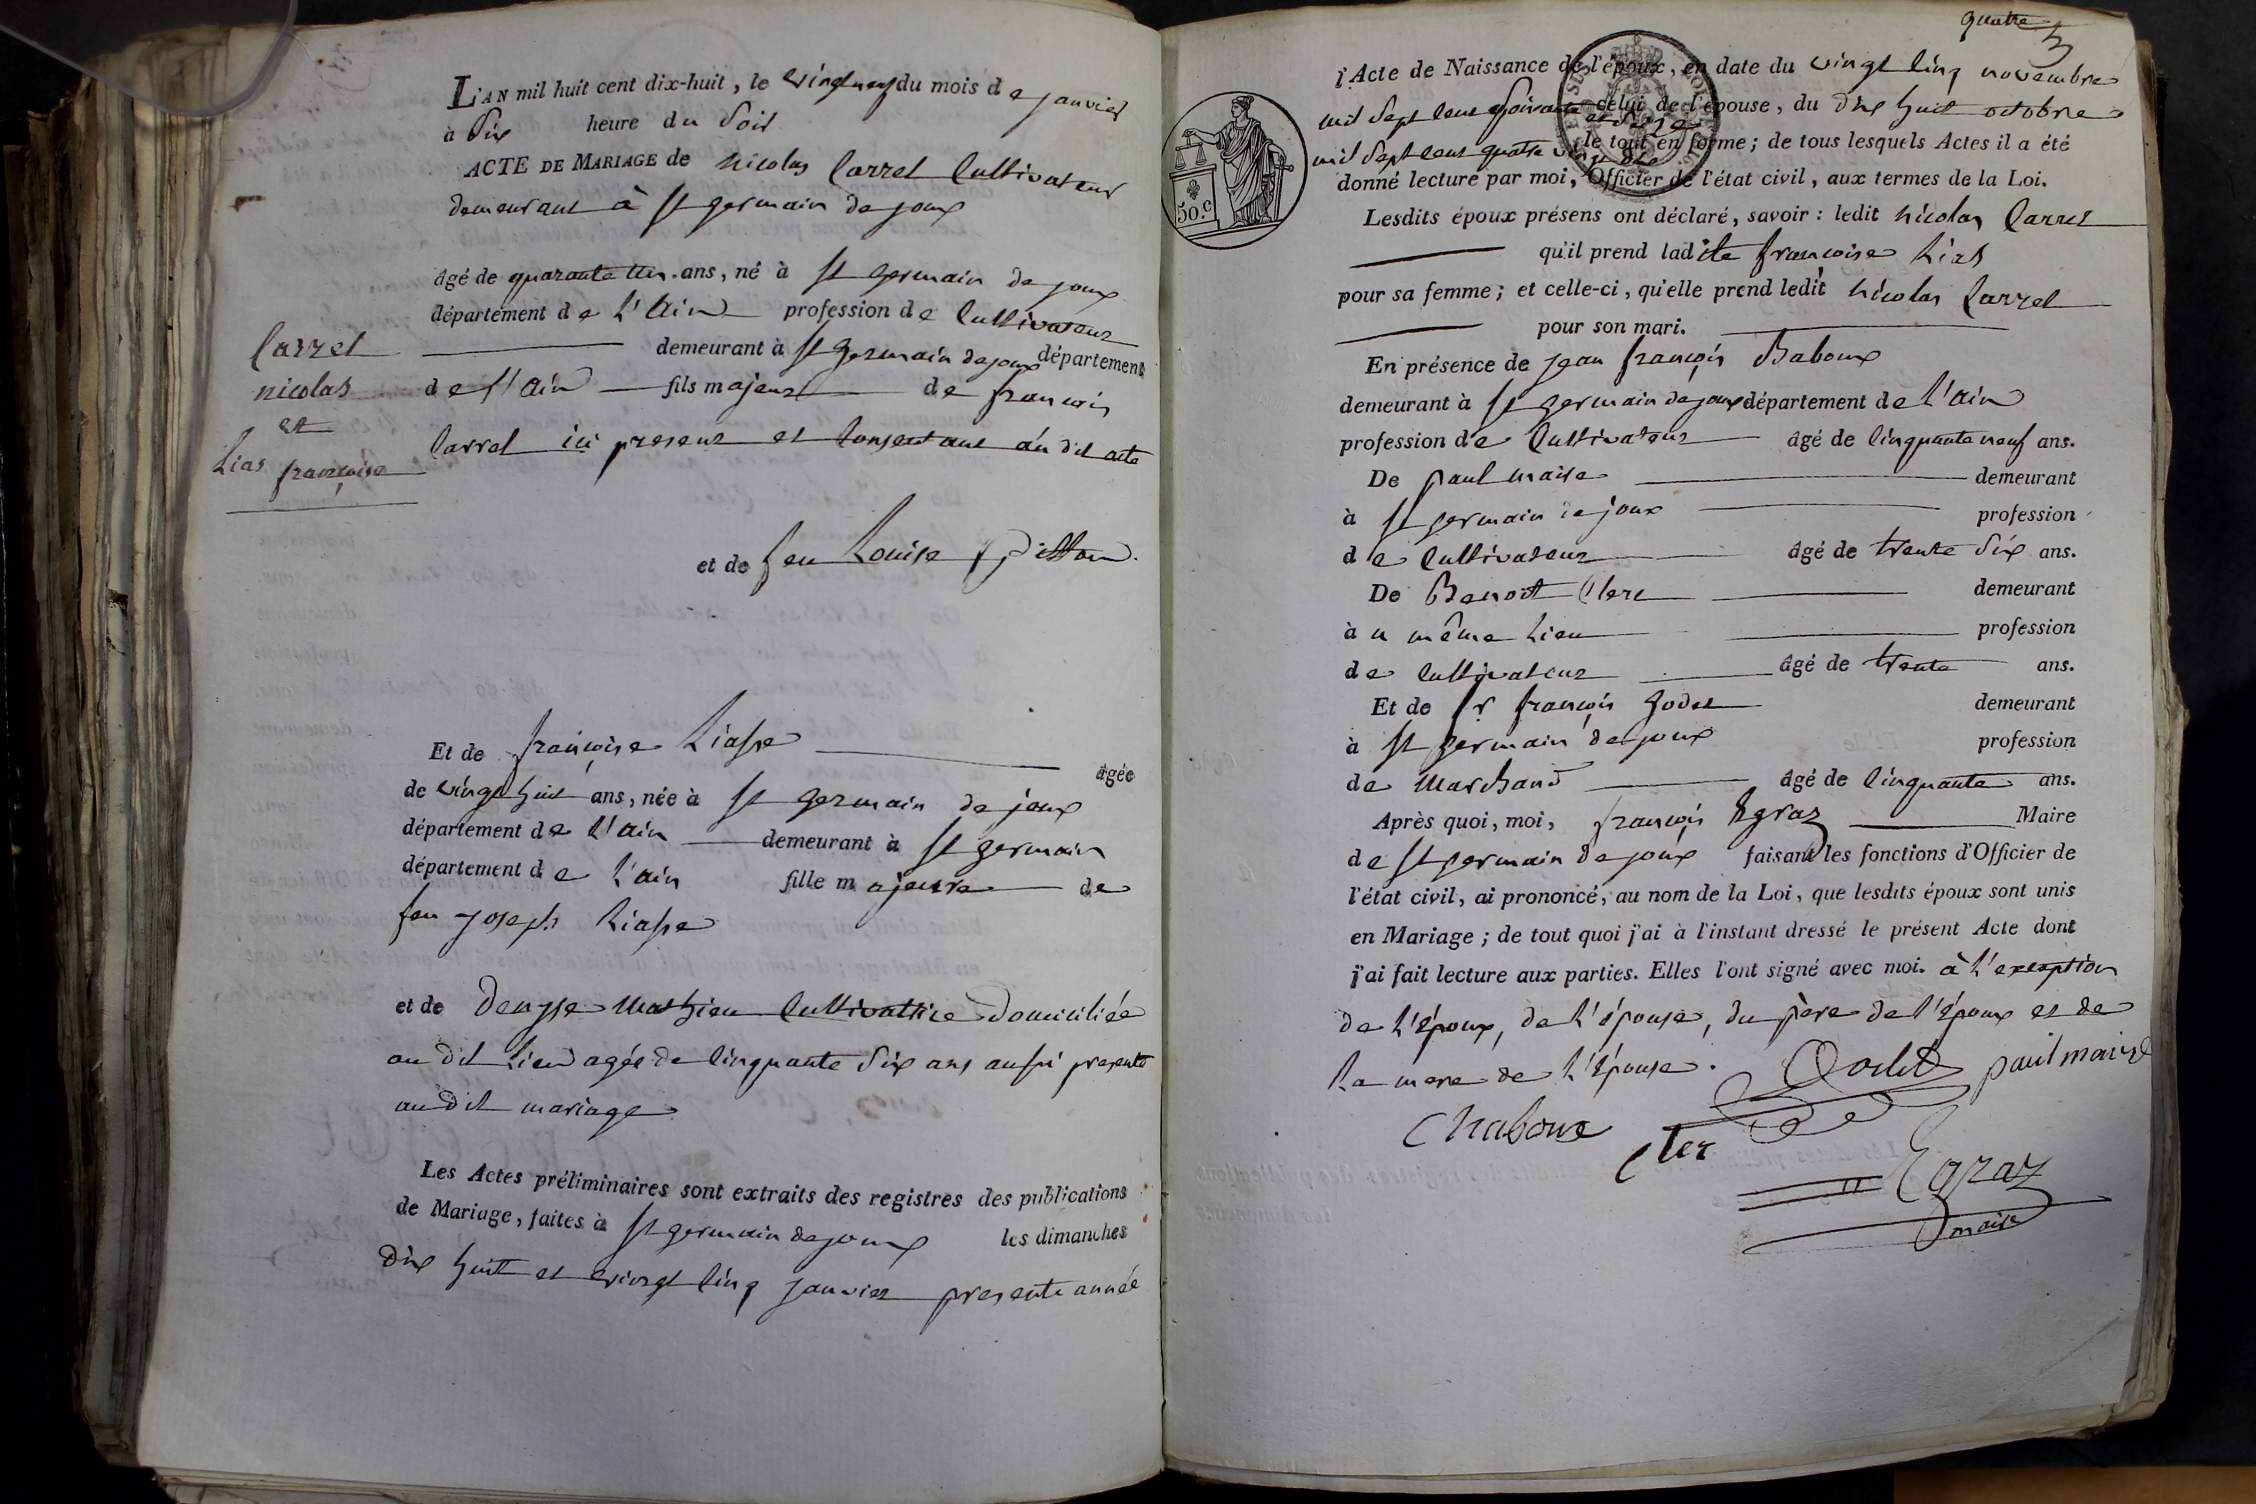 L'AN mil huit cent dix-huit, le vingt neuf du mois de janvier
à Six heure du Soir
ACTE DE MARIAGE de nicolas Carrel Cultivateur
demeurant à st germain de joux
âgé de quarante un ans, né à st germain de joux
département de l'Ain profession de Cultivateur
demeurant à st germain de joux département
de l'ain fils majeur de francois
Carrel ici present et Consentant au dit acte
et de feu Louise Pitton
Carrel
nicolas
et
Lias françoise
Et de françoise Liasse agée
de vingt huit ans, née à st germain de joux
département de l'ain demeurant à st germain
département de l'ain fille majeure de
feu joseph Liasse
et de Denyse Mathieu Cultivatrice domiciliée
au dit lieu agée de Cinquante Six ans aussi presente
au dit mariage
Les Actes préliminaires sont extraits des registres des publications
de Mariage, faites à st germain de joux les dimanches
Dix huit et vingt Cinq janvier presente année
quatre
l'Acte de Naissance de l'époux, en date du vingt Cinq novembre
mil Sept Cent soixante et Seize celui de l'épouse, du Dix huit octobre
mil Sept Cent quatre vingt dix le tout en forme; de tous lesquels Actes il a été
donné lecture par moi, Officier de l'état civil, aux termes de la Loi.
50.c
Lesdits époux présens ont déclaré, savoir : ledit nicolas Carrel
qu'il prend ladite françoise Lias
pour sa femme; et celle-ci, qu'elle prend ledit nicolas Carrel
pour son mari.
En présence de jean françois Baboux
demeurant à st germain de joux département de l'ain
profession de Cultivateur âgé de Cinquante neuf ans.
De paul maire demeurant
à st germain de joux profession
de Cultivateur âgé de trente Six ans.
De Benoit Clerc demeurant
à u même Lieu profession
de Cultivateur âgé de trente ans.
Et de Sr françois Godet demeurant
à st germain de joux profession
de Marchand âgé de Cinquante ans.
Après quoi, moi, françois Egraz Maire
de st germain de joux faisant les fonctions d'Officier de
l'état civil, ai prononcé, au nom de la Loi, que lesdits époux sont unis
en Mariage; de tout quoi j'ai à l'instant dressé le présent Acte dont
j'ai fait lecture aux parties. Elles l'ont signé avec moi. à l'exeption
de l'époux, de l'épouse, du père de l'époux et de
la mere de l'épouse. Godet paul maire
Chaboux Cler
Egraz
maire